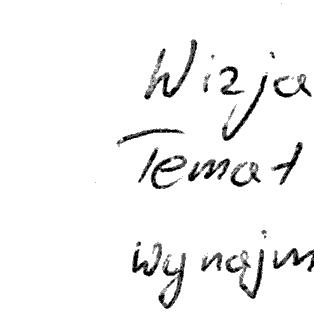 Wizja
Temat
wynajm